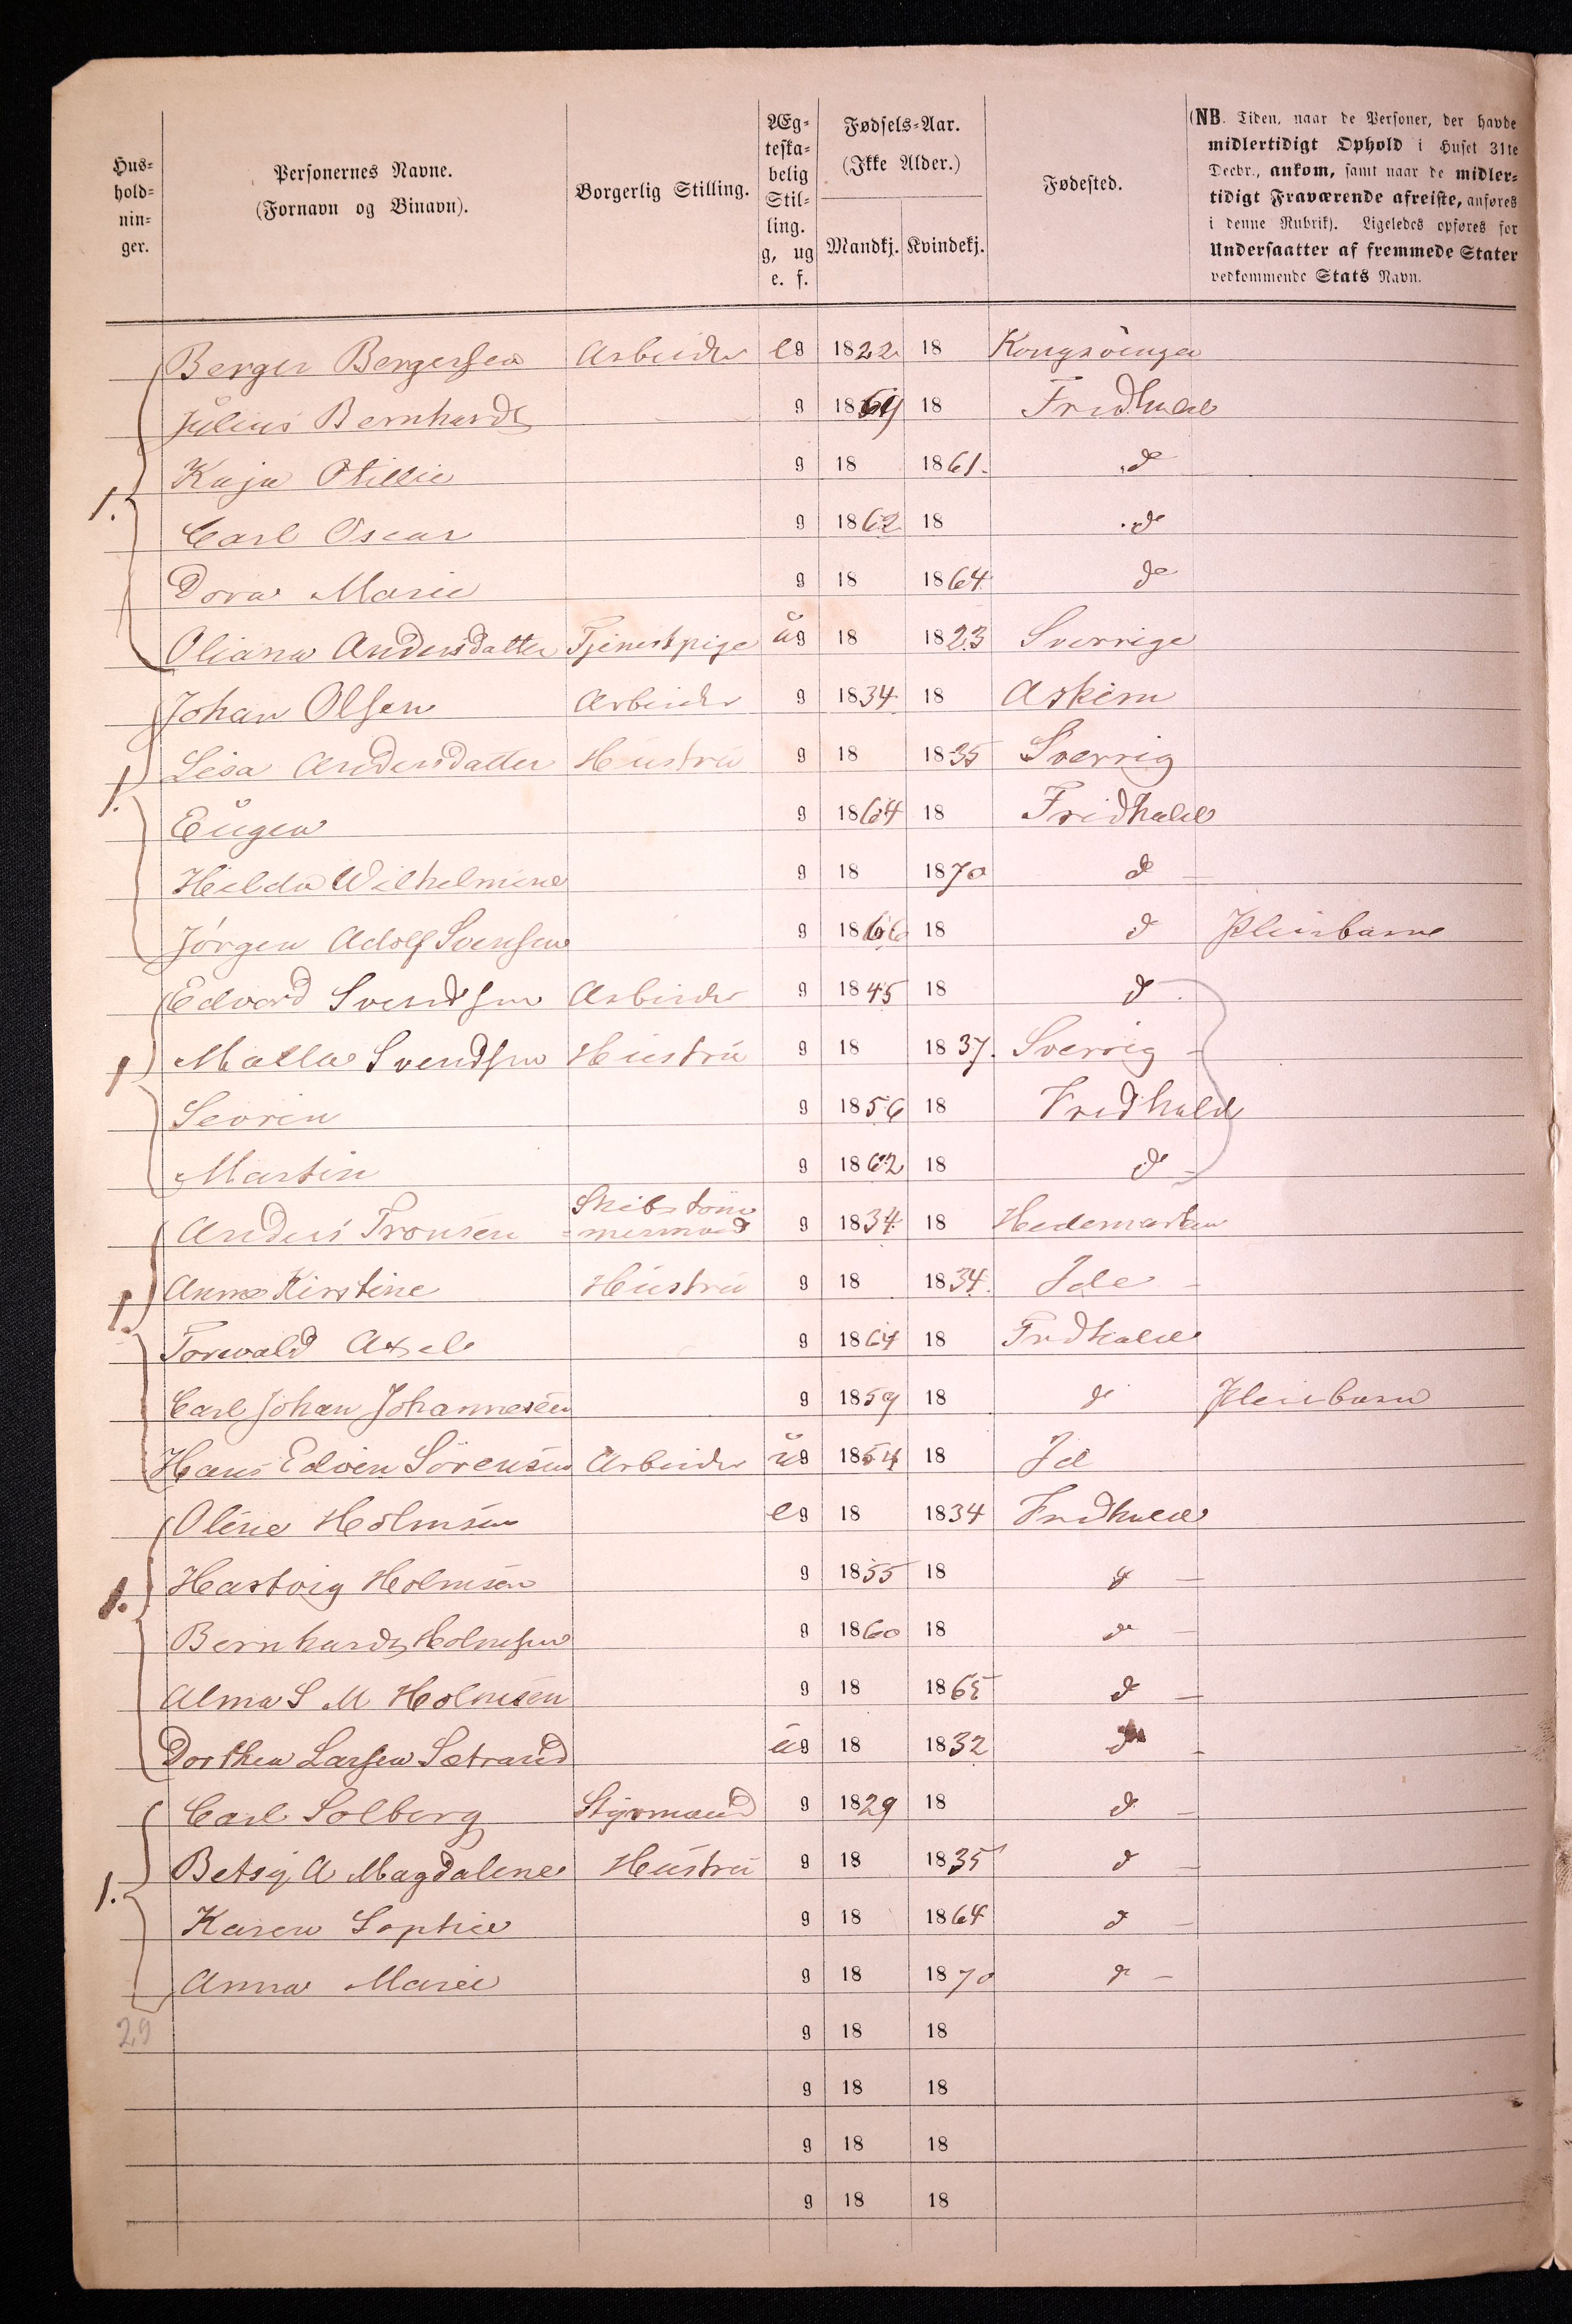 Hus-
hold-
nin-
ger.
Personernes Navne.
(Fornavn og Binavn).
Borgerlig Stilling.
Æg-
teska-
belig
Stil-
ling.
g, ug
e. f.
Fødsels-Aar.
(Ikke Alder.)
Mandkj. Kvindekj.
Fødested.
(NB. Tiden, naar de Personer, der havde
midlertidigt Ophold i Huset 31te
Decbr., ankom, samt naar de midler-
tidigt Fraværende afreiste, anføres
i denne Rubrik). Ligeledes opføres for
Undersaatter af fremmede Stater
vedkommende Stats Navn.
Berger Bergersen Arbeider eg 1822 18 Kongsvinger
Julius Bernhardt g 1869 18 Fridhald
Kaja Otillie g 18 1861. d
1.
Carl Oscar g 1862 18 d
Dora Marie g 18 1864 d
Oliana Andersdatter Tjenestpige ug 18 1823 Sverrige
Johan Olsen Arbeider g 1834 18 Askim
Lisa Andersdatter Hustru g 18 1835 Sverrig
1.
Eugen g 1864 18 Fridhald
Hilda Wilhelmine g 18 1870 d
Jørgen Adolf Svensen g 1866 18 d Pleiebarn
Edvard Svendsen Arbeider g 1845 18 d
1 Malla Svendsen Hustru g 18 1837. Sverrig
Sevrin g 1856 18 Fredhald
Martin g 1862 18 d
Anders Tronsen Skibstøm-
=mermand g 1834 18 Hedemarken
1 Anna Kirstine Hustru g 18 1834. Ide
Torwald Axel g 1864 18 Frdhald
Carl Johan Johannesen g 1859 18 d Pleiebarn
Hans Edvin Sørensen Arbeider ug 1854 18 Id
Oline Holmsen eg 18 1834 Fredhald
1. Hartvig Holmsen g 1855 18 d
Bernhardt Holmsen g 1860 18 d
Alma S M Holmsen g 18 1865 d
Dorthea Larsen Sætrand ug 18 1832 d
Carl Solberg Styrmand g 1829 18 d
Betsy A Magdalene Hustru g 18 1835 d
1.
Karen Sophie g 18 1864 d
Anna Marie g 18 1870 d
29 g 18 18
g 18 18
g 18 18
g 18 18